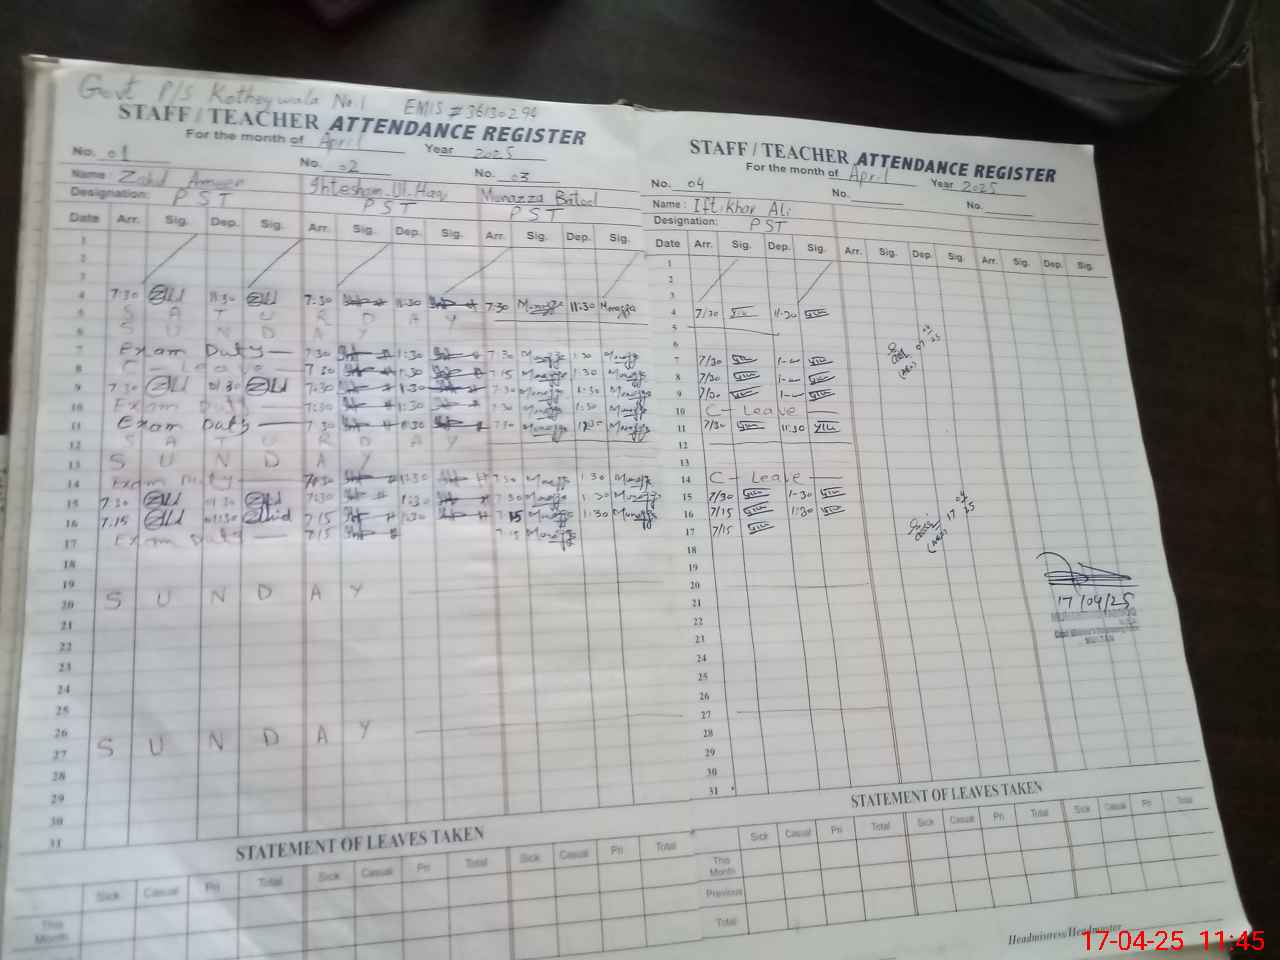 Govt P/S Kotheywala No.1 EMIS # 36130294
STAFF / TEACHER ATTENDANCE REGISTER
For the month of April Year 2025
No. 01 No. 02 No. 03
Name: Zahid Ameer Ihtesham Ul Haq Munazza Batool
Designation: PST PST PST
Date Arr. Sig. Dep. Sig. Arr. Sig. Dep. Sig. Arr. Sig. Dep. Sig.
1
2
3
4 7:30 11:30 7:30 11:30 7:30 Munazza 11:30 Munazza
5 S A T U R D A Y
6 S U N D A Y
7 Exam Duty 7:30 1:30 7:30 Munazza 1:30 Munazza
8 C - Leave 7:30 1:30 7:15 Munazza 1:30 Munazza
9 7:30 01:30 7:30 1:30 7:30 Munazza 1:30 Munazza
10 Exam Duty 7:30 1:30 7:30 Munazza 1:30 Munazza
11 Exam Duty 7:30 11:30 7:30 Munazza Munazza
12 S A T U R D A Y
13 S U N D A Y
14 Exam Duty 7:30 1:30 7:30 Munazza 1:30 Munazza
15 7:30 01:30 7:30 1:30 7:30 Munazza 1:30 Munazza
16 7:15 01:30 7:15 1:30 7:15 Munazza 1:30 Munazza
17 Exam Duty 7:15 7:15 Munazza
18
19
20 S U N D A Y
21
22
23
24
25
26
27 S U N D A Y
28
29
30
31
STATEMENT OF LEAVES TAKEN
Sick Casual Pri Total Sick Casual Pri Total Sick Casual Pri Total
This Month
STAFF / TEACHER ATTENDANCE REGISTER
For the month of April Year 2025
No. 04 No. No.
Name: Iftikhar Ali
Designation: PST
Date Arr. Sig. Dep. Sig. Arr. Sig. Dep. Sig. Arr. Sig. Dep. Sig.
1
2
3
4 7/30 11-30
5
6
7 7/30
8 7/30
9 7/30
10 C - Leave
11 7/30 11:30
12
13
14 C - Leave
15 7/30 1-30
16 7/15 1:30
17 7/15
18
19
20
21
22
23
24
25
26
27
28
29
30
31
17/04/25
MULTAN
STATEMENT OF LEAVES TAKEN
Sick Casual Pri Total Sick Casual Pri Total Sick Casual Pri Total
This Month
Previous
Total
Headmistress/Headmaster
17-04-25 11:45